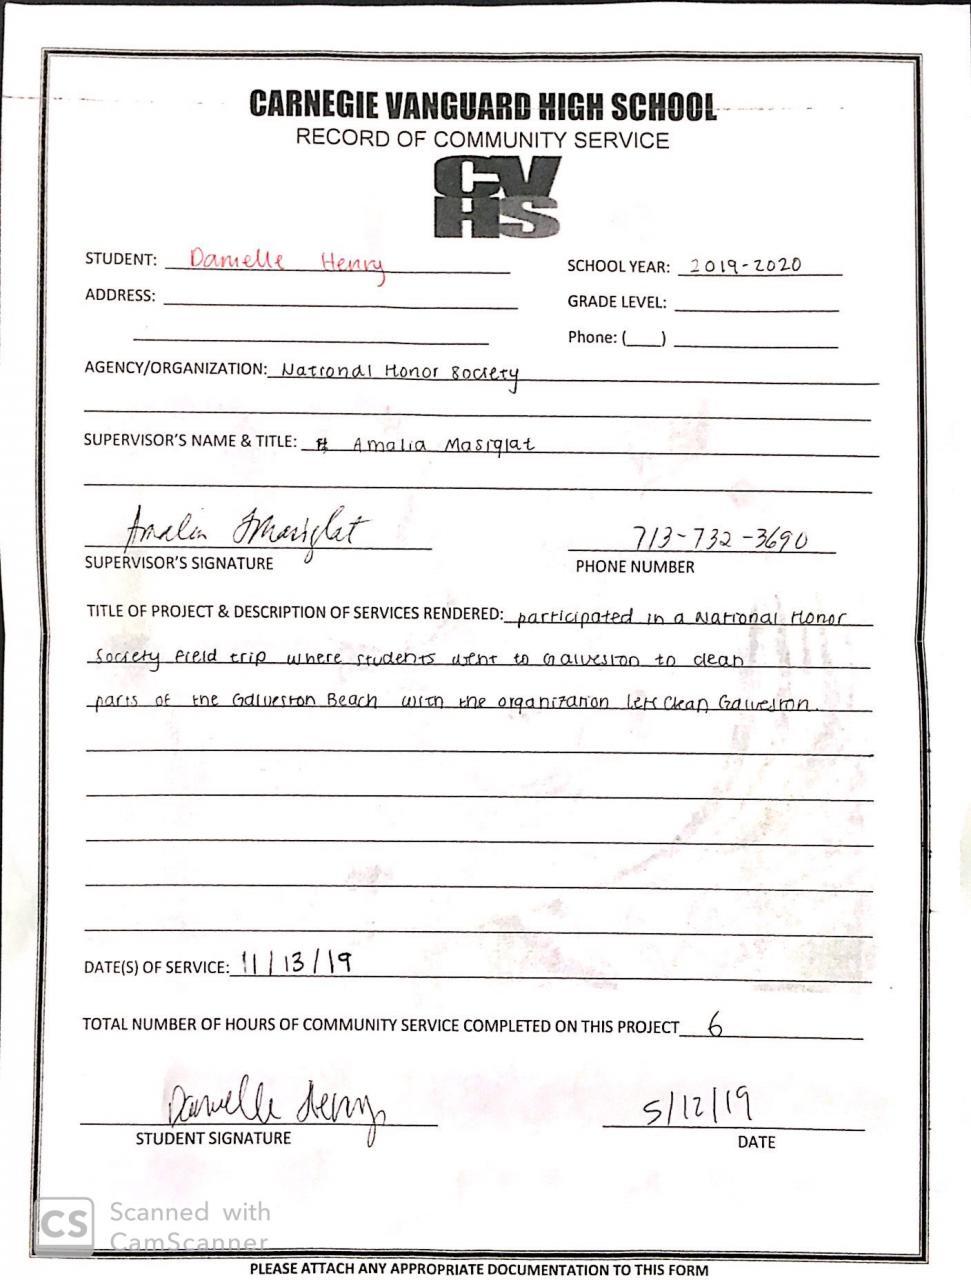 CARNEGIE VANGUARD HIGH SCHOOL
RECORD OF COMMUNITY SERVICE
CV
HS
STUDENT: Danielle Henry
SCHOOL YEAR: 2019-2020
ADDRESS:
GRADE LEVEL:
Phone: (___)
AGENCY/ORGANIZATION: National Honor Society
SUPERVISOR'S NAME & TITLE: Amalia Masiglat
Amalia Masiglat
713-732-3690
SUPERVISOR'S SIGNATURE
PHONE NUMBER
TITLE OF PROJECT & DESCRIPTION OF SERVICES RENDERED: participated in a National Honor
Society field trip where students went to Galveston to clean
parts of the Galveston Beach with the organization Lets Clean Galveston.
DATE(S) OF SERVICE: 11/13/19
TOTAL NUMBER OF HOURS OF COMMUNITY SERVICE COMPLETED ON THIS PROJECT 6
Danielle Henry
5/12/19
STUDENT SIGNATURE
DATE
CS Scanned with
CamScanner
PLEASE ATTACH ANY APPROPRIATE DOCUMENTATION TO THIS FORM